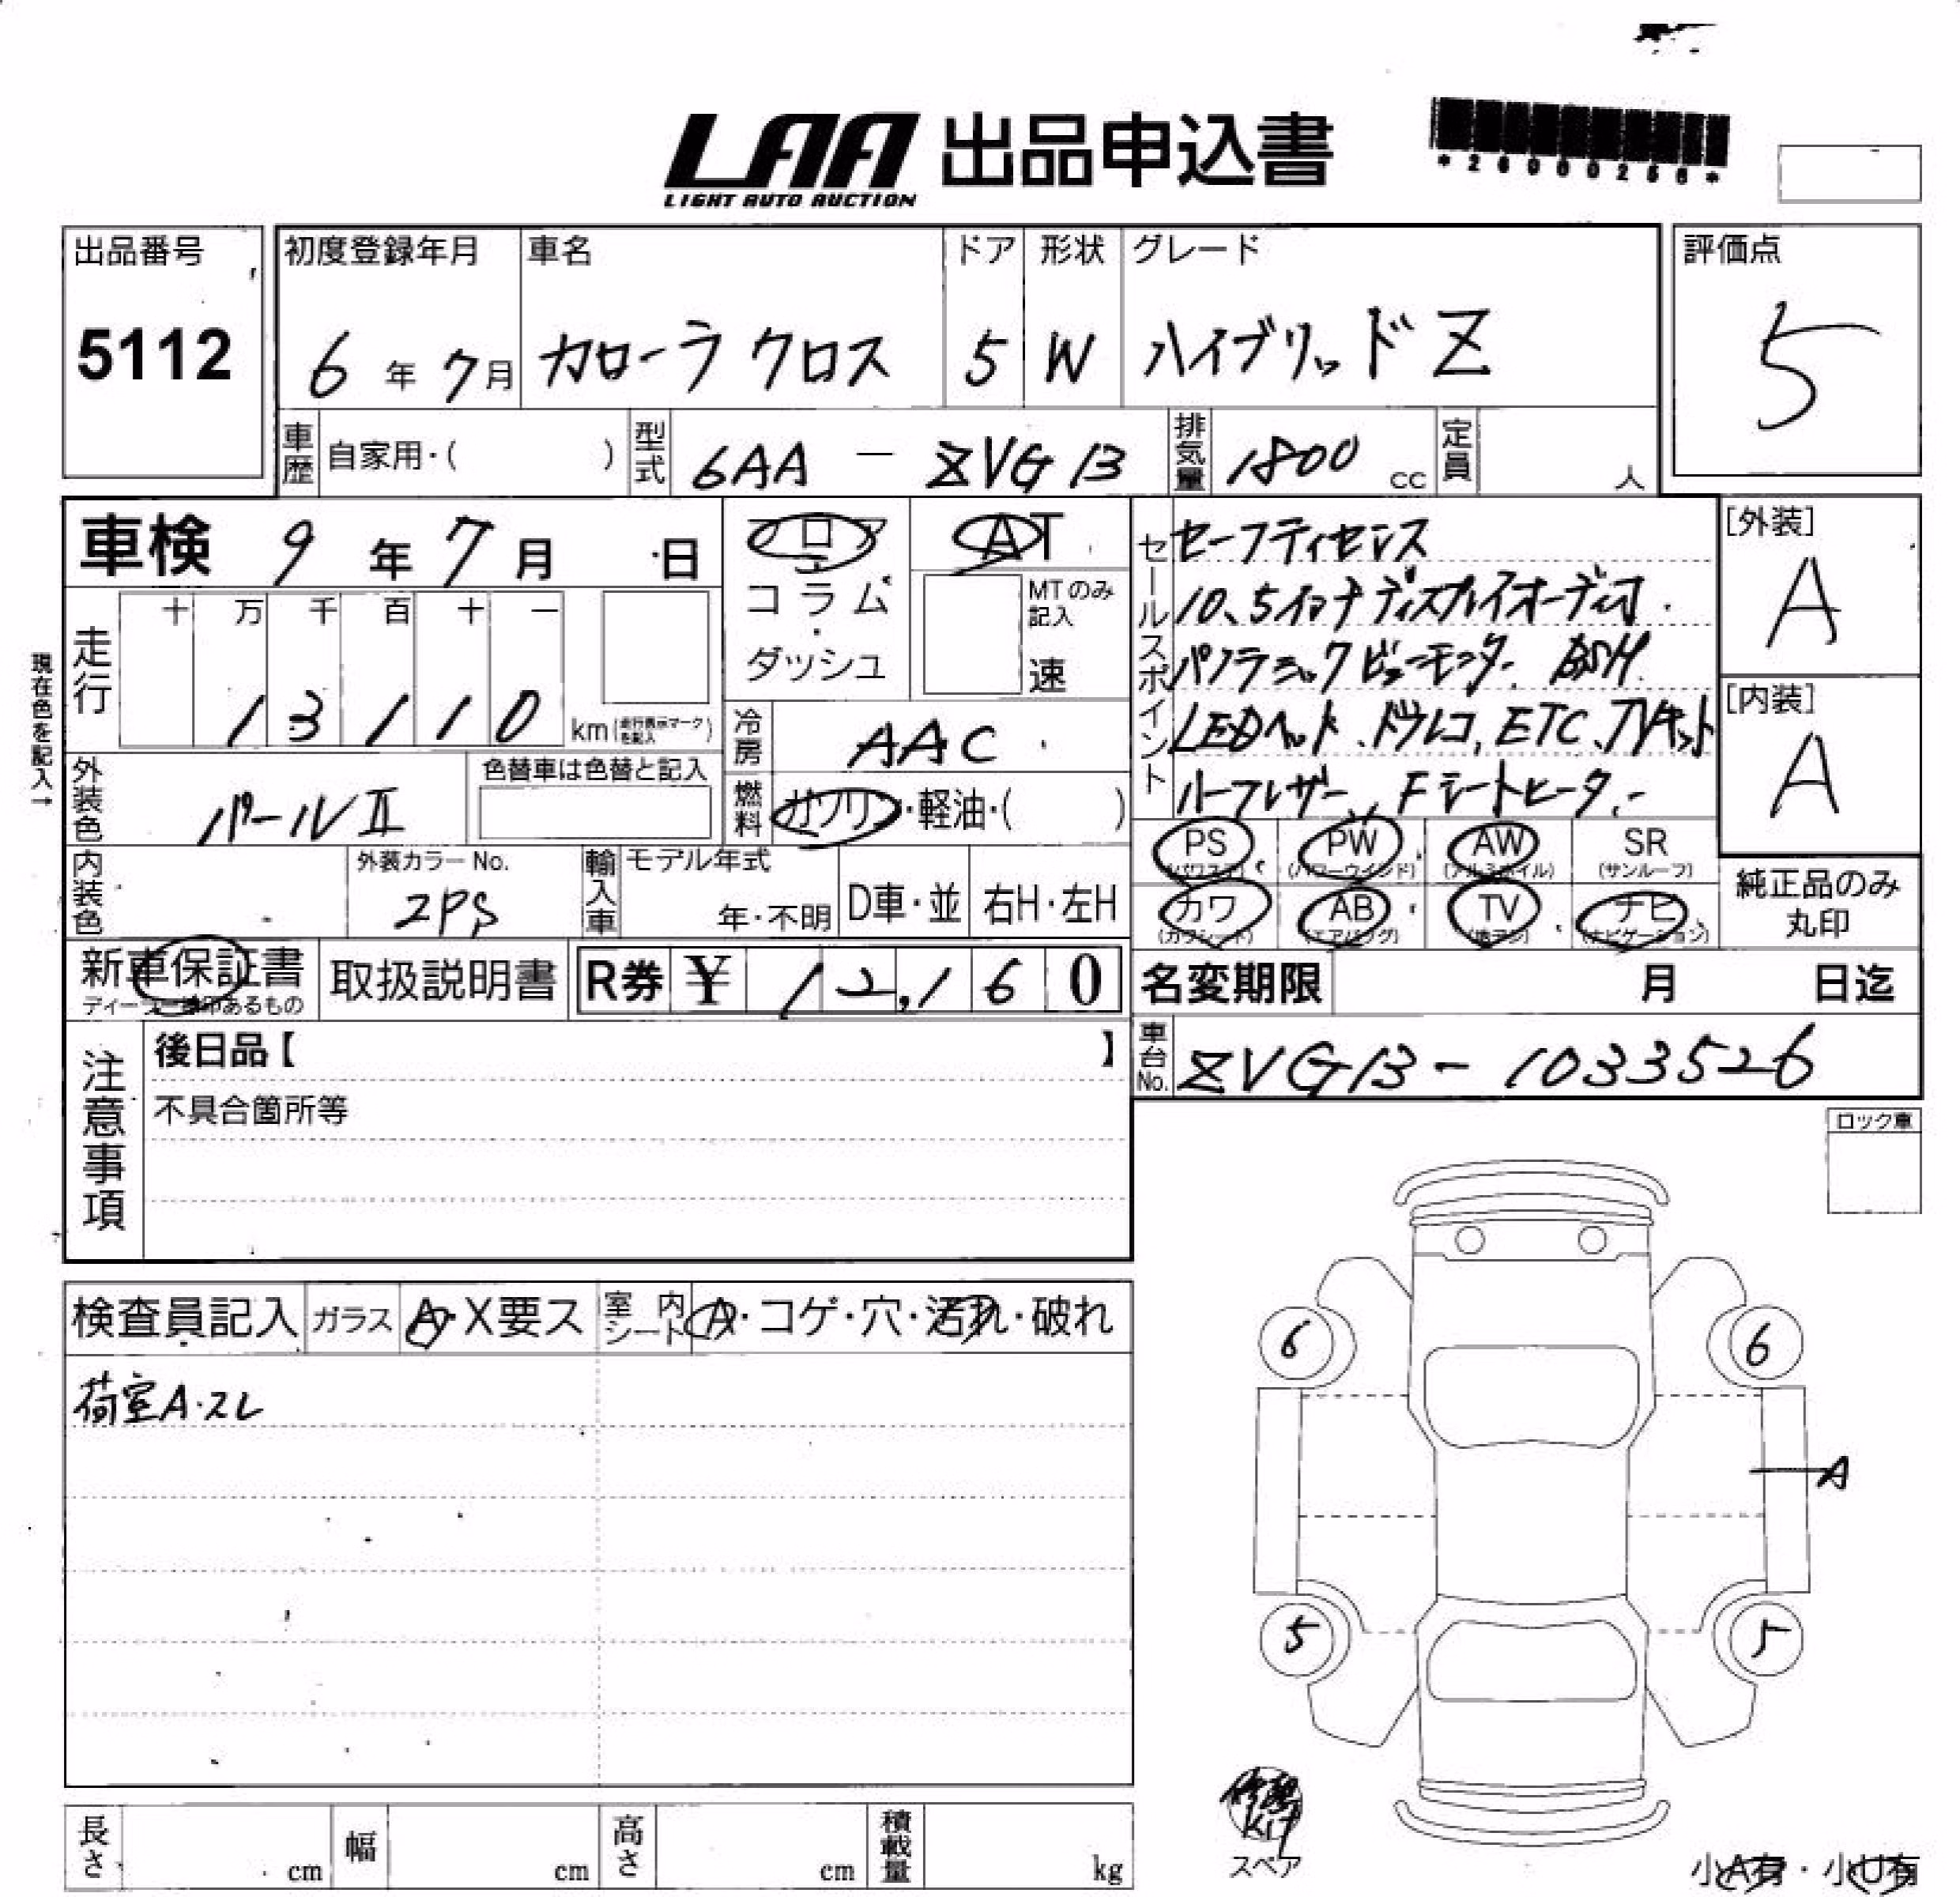 LAA 出品申込書
LIGHT AUTO AUCTION
*26000256*
出品番号
5112
初度登録年月
6年7月
車名
カローラクロス
ドア
5
形状
W
グレード
ハイブリッドZ
評価点
5
車歴 自家用・( )
型式 6AA－ZVG13
排気量 1800 cc
定員 人
現在色を記入→
車検 9年7月 日
フロア
コラム
・
ダッシュ
AT
MTのみ
記入
速
走行
十 万 千 百 十 一
1 3 1 1 0
km(走行表示マークを記入)
冷房 AAC
燃料 ガソリン・軽油・( )
外装色 パールII
色替車は色替と記入
内装色
外装カラーNo.
2PS
輸入車
モデル年式
年・不明
D車・並
右H・左H
セールスポイント
セーフティセンス
10、5インチディスプレイオーディオ.
パノラミックビューモニター. BSM.
LEDヘッド、ドラレコ、ETC、TVキット
ハーフレザー、Fシートヒーター
[外装]
A
[内装]
A
PS (パワステ)
PW (パワーウインド)
AW (アルミホイル)
SR (サンルーフ)
カワ (カワシート)
AB (エアバッグ)
TV (地デジ)
ナビ (ナビゲーション)
純正品のみ
丸印
新車保証書
取扱説明書
R券 ¥ 12,160
名変期限 月 日迄
車台No. ZVG13-1033526
注意事項
後日品【 】
不具合箇所等
ロック車
検査員記入
ガラス A・X要ス
室内シート A・コゲ・穴・汚れ・破れ
荷室A・スレ
6
6
A
5
5
修理
KIT
スペア
小A有・小U有
長さ cm
幅 cm
高さ cm
積載量 kg